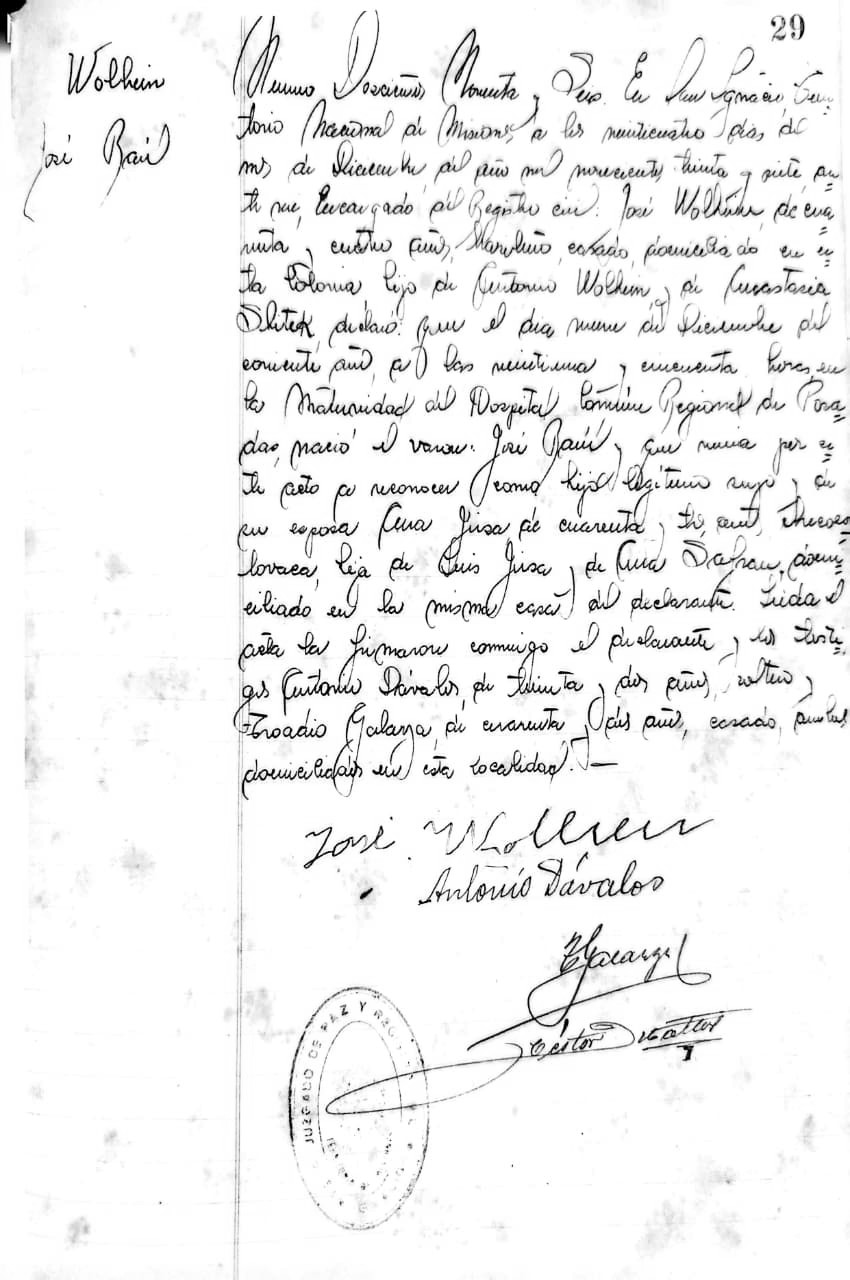 29
Wolhein
José Raúl
Número Doscientos Noventa y Seis. En San Ignácio, Terri=
torio Nacional de Misiones, a los veinticuatro dias del
mes de Diciembre del año mil novecientos treinta y siete an=
te mi, Encargado del Registro civil: José Wolhein, de cua=
renta y cuatro años, casado, domiciliado en es=
ta Colonia hijo de Antonio Wolhein y de Anastacia
declaró: que el dia nueve de Diciembre del
corriente año, a las veintiuna y cincuenta horas, en
la Maternidad del Hospital Común Regional de Posa=
das, nació el varon: José Raúl y que venia por es=
te acto a reconocer como hijo legítimo suyo y de
su esposa Ana Jusa de cuarenta y tres años, checoes=
lovaca, hija de Luis Jusa y de Ana Safrau, domi=
ciliado en la misma casa del declarante. Leida el
acta la firmaron conmigo el declarante y los testi=
gos Antonio Dávalos, de treinta y dos años, soltero y
Troadio Galarza, de cuarenta y dos años, casado, ambos
domiciliados en esta localidad. —
José Wolhein
Antonio Dávalos
T Galarza
Néstor
JUZGADO DE PAZ Y REG